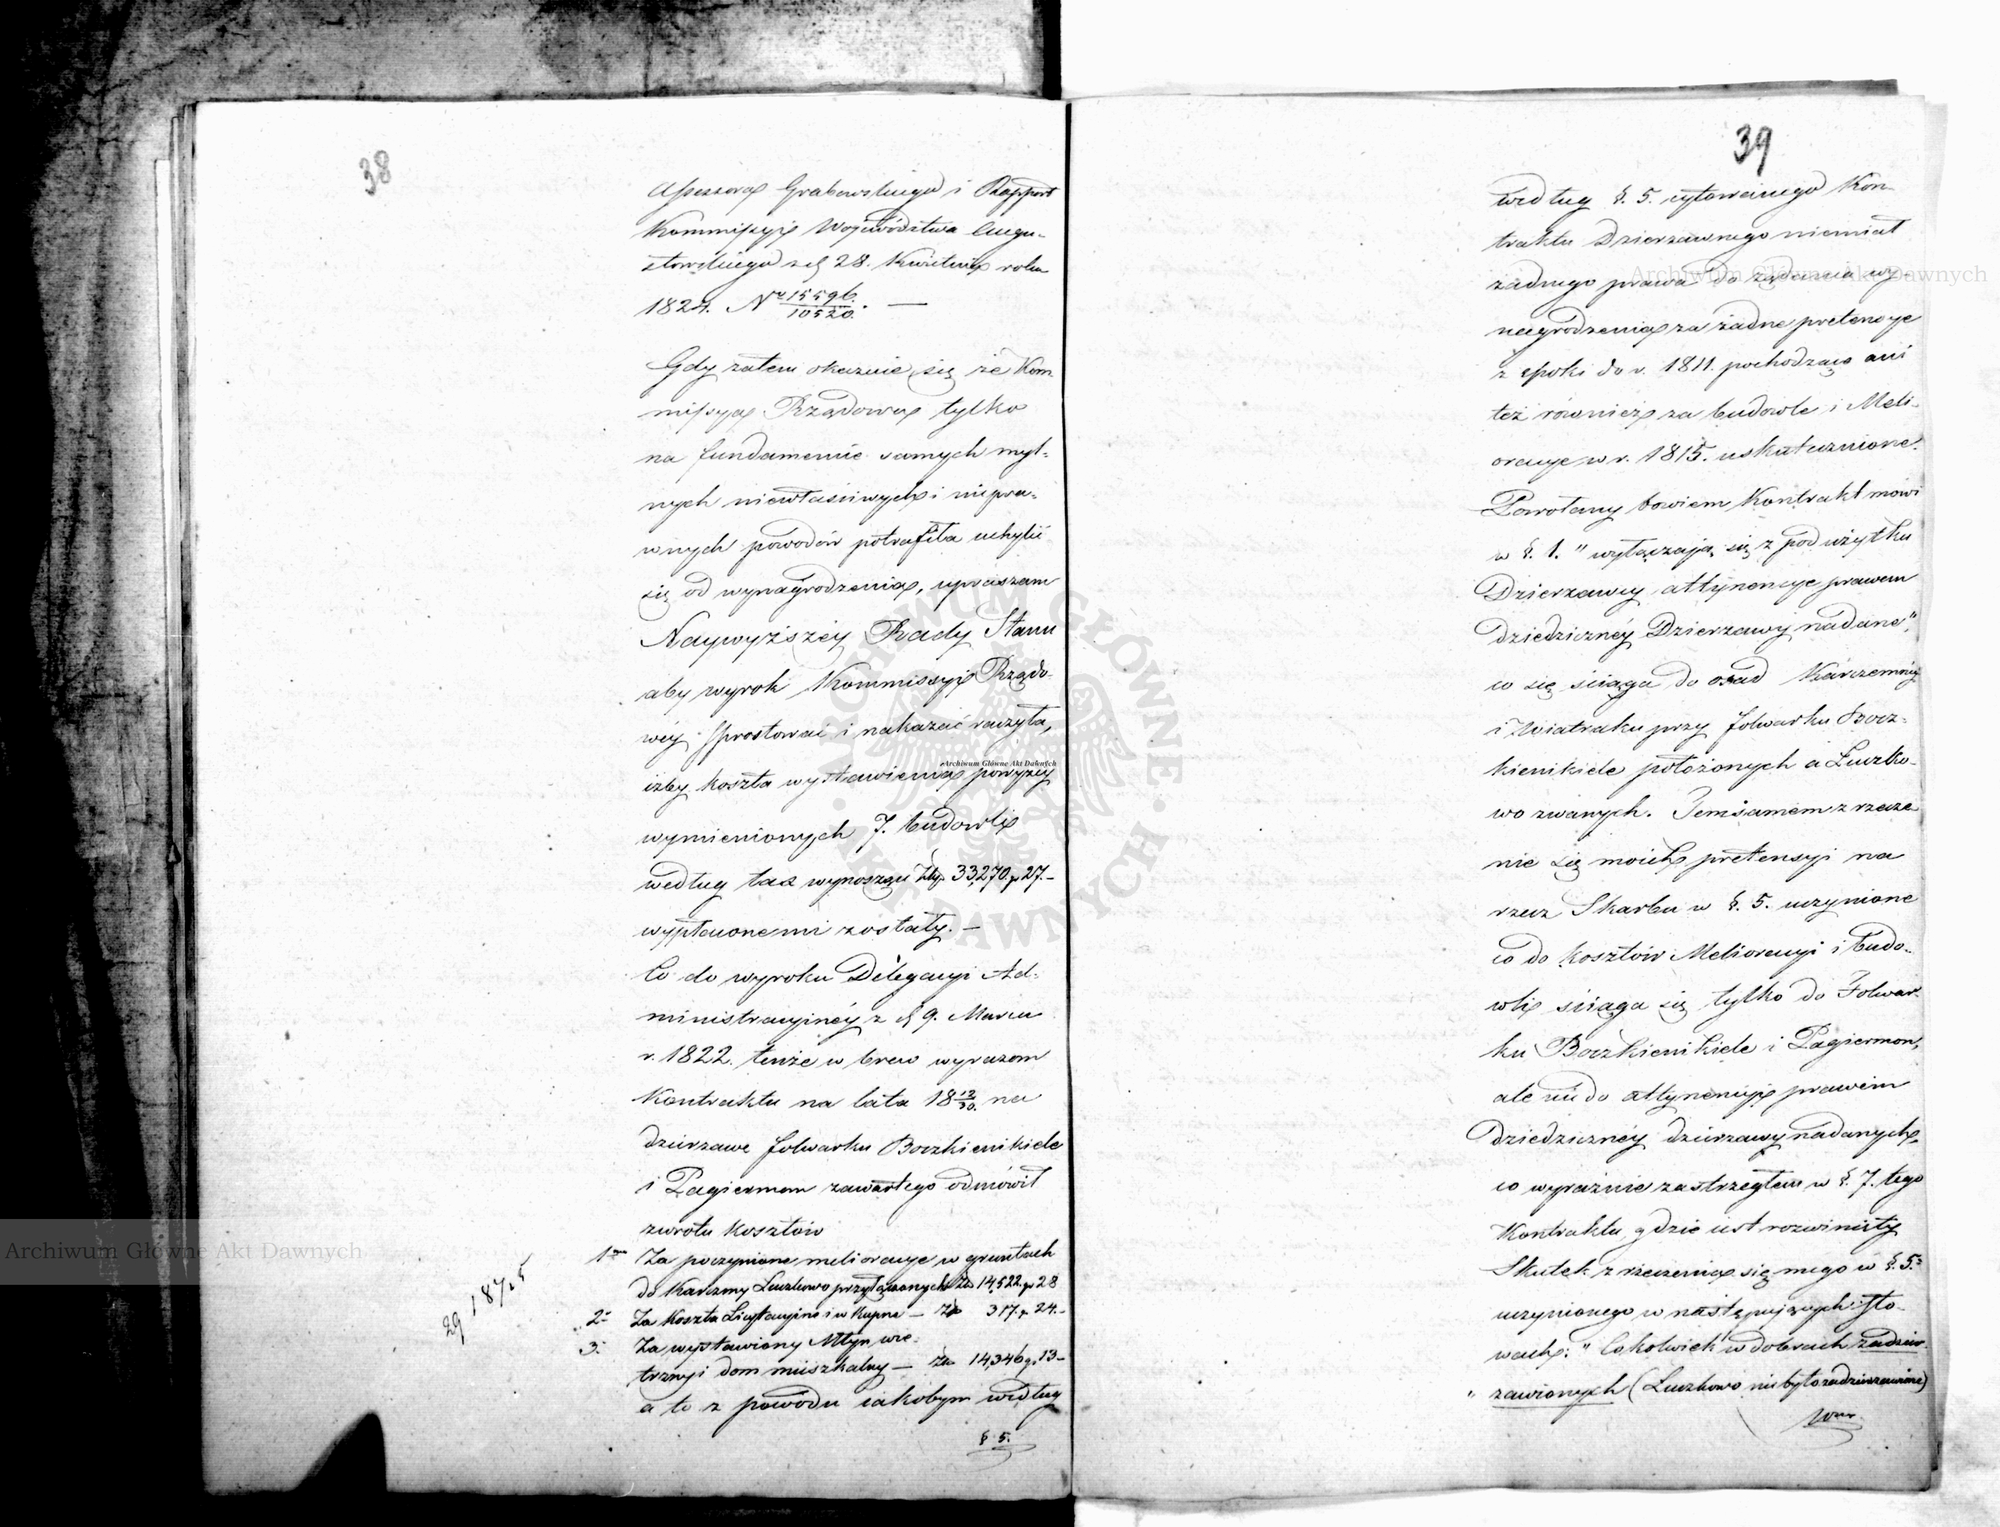 38
Assessora Grabowskiego i Rapport
Kommissyi Województwa Augu-
stowskiego z d. 28. Kwietnia roku
1824. No 15596/10520. —
Gdy zatem okazuie się że Kom
missya Rządowa tylko
na fundamencie samych myl-
nych niewłaściwych i niepra-
wnych powodów potrafiła uchylić
się od wynagrodzenia, upraszam
Naywyższéy Rady Stanu
aby wyrok Kommissyi Rządo-
wéy sprostować i nakazać raczyła,
iżby koszta wystawienia powyzey
wymienionych 7. budowli
według tax wynoszące Złp. 33,270. g 27.-
wypłaconemi zostały. —
Co do wyroku Delegacyi Ad-
ministracyinéy z d. 9. Marca
r. 1822. tenże w brew wyrazom
Kontraktu na lata 18 12/30. na
dzierzawę folwarku Boczkienikiele
i Pagiermon zawartego odmówił
zwrotu kosztów
1mo Za poczynione melioracye w gruntach
do Karczmy Luczkowo przyłączonych Złp 14,522. g 28
2o Za Koszta Licytacyine i w Kupne — Złp 317. g 24.-
3o Za wystawiony Młyn wie-
trzny i dom mieszkalny — Złp 14,346 g. 13-
a to z powodu iakobym według
§ 5.
29,187,25
39
według §. 5. cytowanego Kon-
traktu Dzierzawnego niemiał
żadnego prawa do żądania wy-
nagrodzenia za żadne pretensye
z epoki do r. 1811. pochodzące ani
też również za budowle i Meli-
oracye w r. 1815. uskutecznione.
Powołany bowiem Kontrakt mówi
w §. 1. "wyłączaią się z pod użytku
Dzierzawcy attynencye prawem
Dziedzicznéy Dzierzawy nadane",
co się ściąga do osad Karczemnéy
i Wiatraku przy folwarku Bocz-
kienikiele położonych a Luczko-
wo zwanych. Temsamem zrzecze
nie się moich pretensyi na
rzecz Skarbu w §. 5. uczynione
co do kosztów Melioracyi i budo-
wli ściąga się tylko do Folwar-
ku Boczkienikiele i Pagiermon,
ale nie do attynencyi prawem
Dziedzicznéy dzierzawy nadanych,
co wyraźnie zastrzegłem w §. 7. tego
Kontraktu, gdzie iest rozwinięty
Skutek zrzeczenia się mego w §. 5.
uczynionego w następujących sło-
wach: "Cokolwiek w dobrach zadzier-
" zawionych (Luczkowo niebyło zadzierzawione)
Archiwum Główne Akt Dawnych
Archiwum Główne Akt Dawnych
Archiwum Główne Akt Dawnych
ARCHIWUM GŁÓWNE AKT DAWNYCH